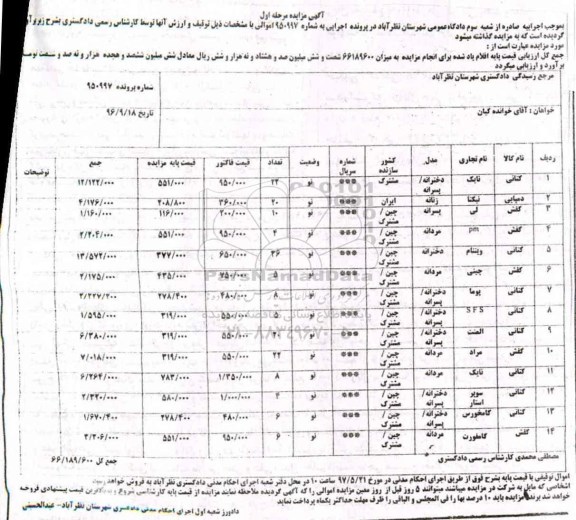 آگهی مزایده مرحله اول
بموجب اجرائیه صادره از شعبه سوم دادگاه عمومی شهرستان نظرآباد در پرونده اجرایی به شماره ۹۵۰۹۹۷ اموالی با مشخصات ذیل توقیف و ارزش آنها توسط کارشناس رسمی دادگستری بشرح زیر برآورد
گردیده است که به مزایده گذاشته میشود
مورد مزایده عبارت است از :
جمع کل ارزیابی قیمت پایه اقلام یاد شده برای انجام مزایده به میزان ۶۶۱۸۹۶۰۰ شصت و شش میلیون صد و هشتاد و نه هزار و شش ریال معادل شش میلیون ششصد و هجده هزار و نه صد و شصت تومان
برآورد و ارزیابی میگردد
مرجع رسیدگی دادگستری شهرستان نظرآباد
شماره پرونده ۹۵۰۹۹۷
خواهان : آقای خوانده کیان
تاریخ ۹۶/۹/۱۸
ردیف نام کالا نام تجاری مدل کشور سازنده شماره سریال وضعیت تعداد قیمت فاکتور قیمت پایه مزایده جمع توضیحات
۱ کتانی نایک دخترانه/پسرانه مشترک *** نو ۲۲ ۹۵۰/۰۰۰ ۵۵۱/۰۰۰ ۱۲/۱۲۲/۰۰۰
۲ دمپایی نیکتا زنانه ایران *** نو ۲۰ ۳۶۰/۰۰۰ ۲۰۸/۸۰۰ ۴/۱۷۶/۰۰۰
۳ کفش لی پسرانه چین/مشترک *** نو ۱۰ ۲۰۰/۰۰۰ ۱۱۶/۰۰۰ ۱/۱۶۰/۰۰۰
۴ کفش pm مردانه چین/مشترک *** نو ۴ ۹۵۰/۰۰۰ ۵۵۱/۰۰۰ ۲/۲۰۴/۰۰۰
۵ کتانی ویتنام دخترانه چین/مشترک *** نو ۳۶ ۶۵۰/۰۰۰ ۳۷۷/۰۰۰ ۱۳/۵۷۲/۰۰۰
۶ کفش چینی مردانه چین/مشترک *** نو ۵ ۷۵۰/۰۰۰ ۴۳۵/۰۰۰ ۲/۱۷۵/۰۰۰
۷ کتانی پوما دخترانه/پسرانه چین/مشترک *** نو ۸ ۴۸۰/۰۰۰ ۲۷۸/۴۰۰ ۲/۲۲۷/۲۰۰
۸ کتانی SFS دخترانه/پسرانه چین/مشترک *** نو ۵ ۵۵۰/۰۰۰ ۳۱۹/۰۰۰ ۱/۵۹۵/۰۰۰
۹ کتانی المنت دخترانه/پسرانه چین/مشترک *** نو ۲۰ ۵۵۰/۰۰۰ ۳۱۹/۰۰۰ ۶/۳۸۰/۰۰۰
۱۰ کفش مراد مردانه چین/مشترک *** نو ۲۲ ۵۵۰/۰۰۰ ۳۱۹/۰۰۰ ۷/۰۱۸/۰۰۰
۱۱ کتانی نایک مردانه چین/مشترک *** نو ۸ ۱/۳۵۰/۰۰۰ ۷۸۳/۰۰۰ ۶/۲۶۴/۰۰۰
۱۲ کتانی سوپر استار دخترانه/پسرانه چین/مشترک *** نو ۴ ۱/۰۰۰/۰۰۰ ۵۸۰/۰۰۰ ۲/۳۲۰/۰۰۰
۱۳ کتانی کامخورس دخترانه/پسرانه چین/مشترک *** نو ۶ ۴۸۰/۰۰۰ ۲۷۸/۴۰۰ ۱/۶۷۰/۴۰۰
۱۴ کفش کامفورت مردانه چین/مشترک *** نو ۶ ۹۵۰/۰۰۰ ۵۵۱/۰۰۰ ۲/۲۰۶/۰۰۰
مصطفی محمدی کارشناس رسمی دادگستری
جمع کل ۶۶/۱۸۹/۶۰۰
اموال توقیفی با قیمت پایه بشرح فوق از طریق اجرای احکام مدنی در مورخ ۹۷/۵/۲۱ ساعت ۱۰ در محل دفتر شعبه اجرای احکام مدنی دادگستری نظر آباد به فروش خواهد رسید
اشخاصی که مایل به شرکت در مزایده میباشند میتوانند ۵ روز قبل از روز معین مزایده اموالی را که آگهی گردیده ملاحظه نمایند مزایده از قیمت پایه کارشناسی شروع و به بالاترین قیمت پیشنهادی فروخته
خواهد شد برنده مزایده باید ۱۰ درصد بها را فی المجلس و الباقی را ظرف مهلت حداکثر یکماه پرداخت نماید
دادورز شعبه اول اجرای احکام مدنی دادگستری شهرستان نظرآباد - عبدالحسینی
ParsNamadData
۰۲۱-۸۸۳۴۹۶۷۰